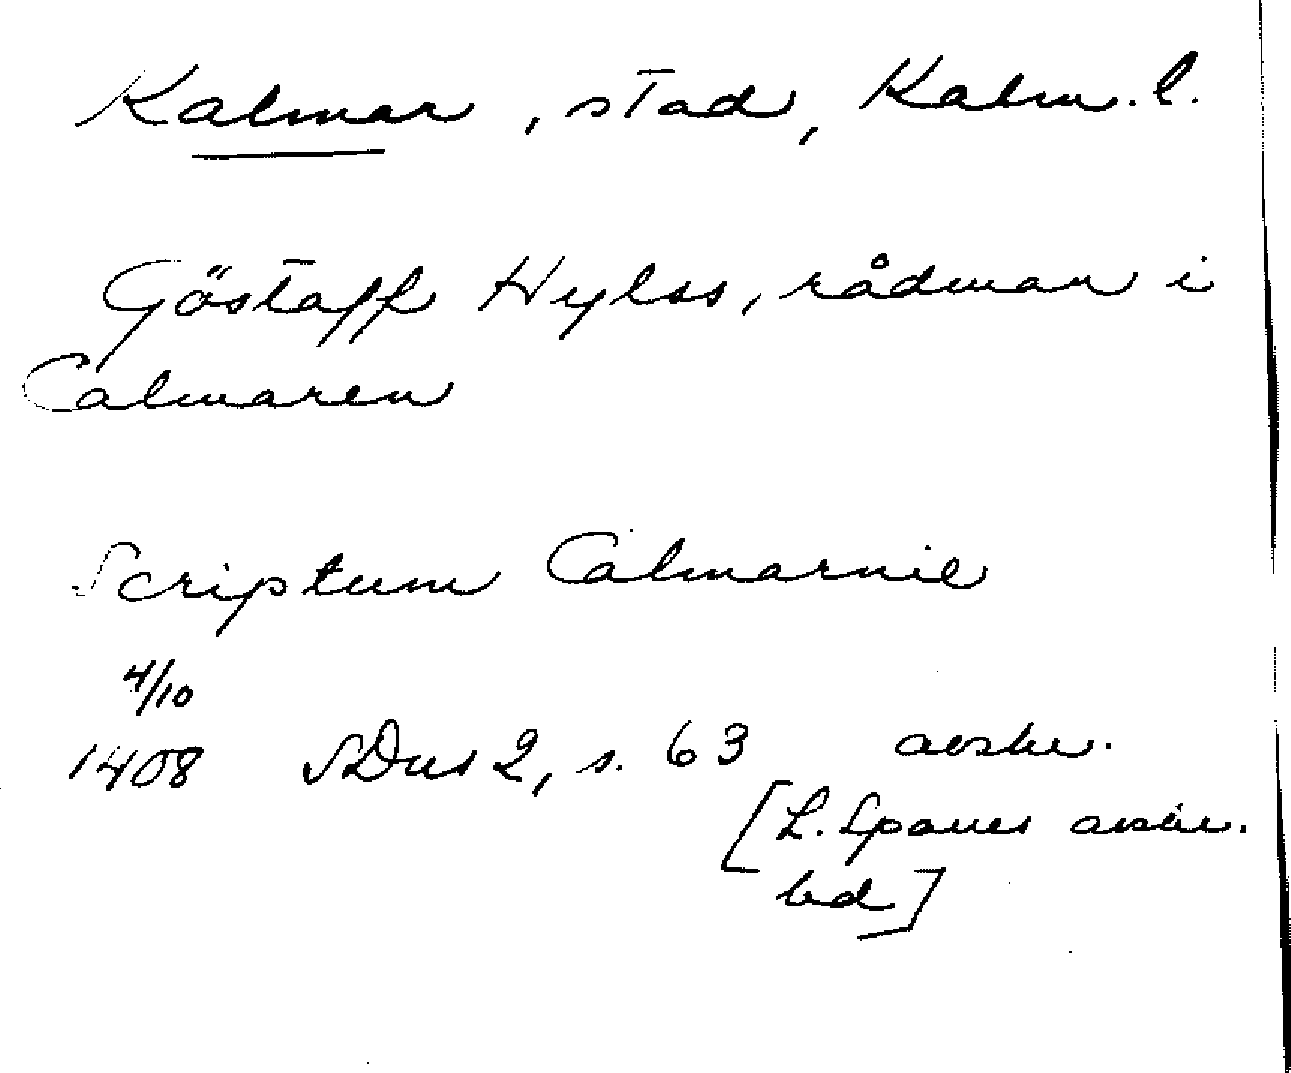 Kalmar, stad, Kalm. l.
Göstaff Hylss, rådman i
Calmaren
Scriptum Calmarnie
4/10
1408 SDns 2, s. 63 avskr.
[L. Sparres avskr.
bd]